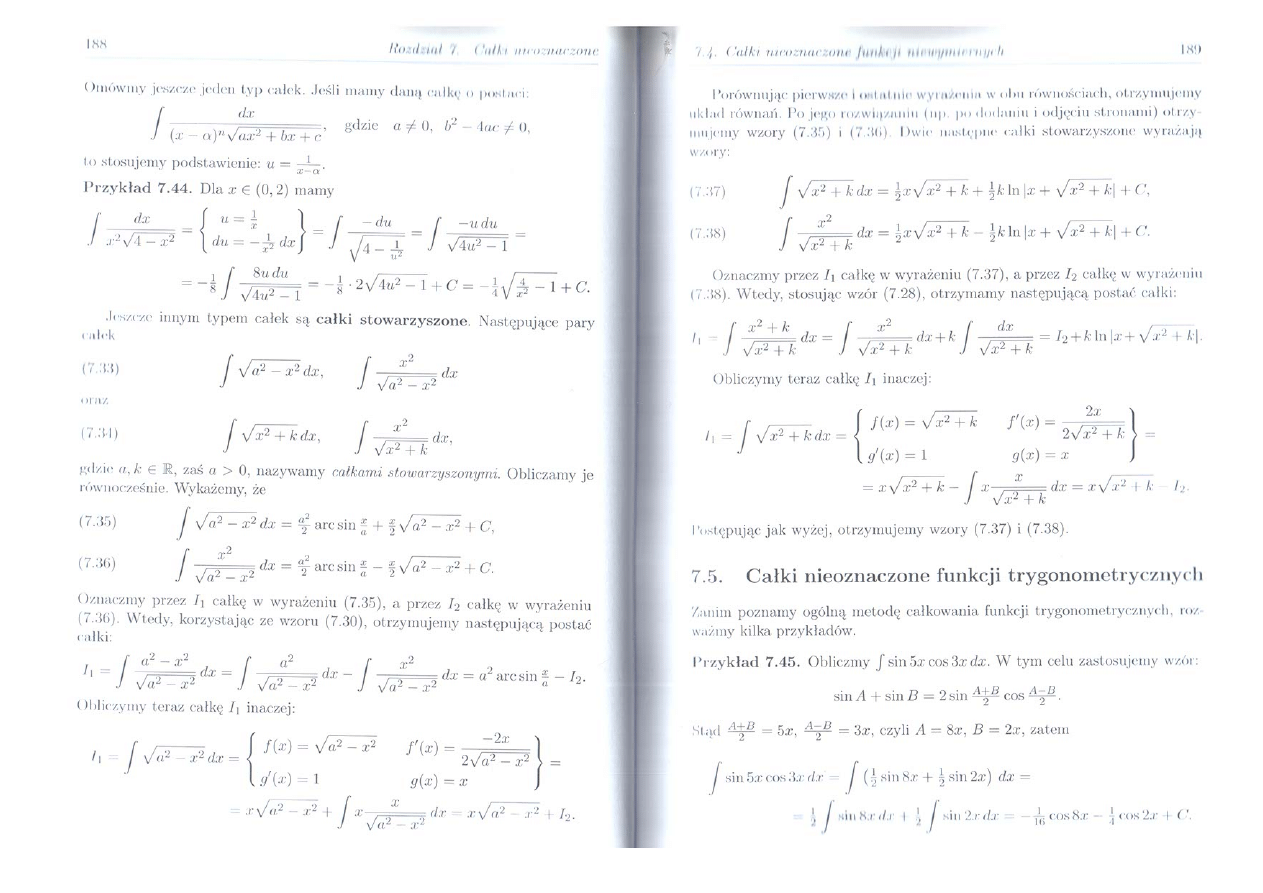 188 Rozdział 7. Całki nieoznaczone
Omówmy jeszcze jeden typ całek. Jeśli mamy daną całkę o postaci:
∫ dx / ((x − α)ⁿ√(ax² + bx + c)), gdzie a ≠ 0, b² − 4ac ≠ 0,
to stosujemy podstawienie: u = 1/(x−α).
Przykład 7.44. Dla x ∈ (0, 2) mamy
∫ dx / (x²√(4 − x²)) = { u = 1/x ; du = −1/x² dx } = ∫ −du / √(4 − 1/u²) = ∫ −u du / √(4u² − 1) =
= −1/8 ∫ 8u du / √(4u² − 1) = −1/8 · 2√(4u² − 1) + C = −1/4 √(4/x² − 1) + C.
Jeszcze innym typem całek są całki stowarzyszone. Następujące pary
całek
(7.33) ∫ √(a² − x²) dx, ∫ x² / √(a² − x²) dx
oraz
(7.34) ∫ √(x² + k) dx, ∫ x² / √(x² + k) dx,
gdzie a, k ∈ ℝ, zaś a > 0, nazywamy całkami stowarzyszonymi. Obliczamy je
równocześnie. Wykażemy, że
(7.35) ∫ √(a² − x²) dx = a²/2 arc sin x/a + x/2 √(a² − x²) + C,
(7.36) ∫ x² / √(a² − x²) dx = a²/2 arc sin x/a − x/2 √(a² − x²) + C.
Oznaczmy przez I₁ całkę w wyrażeniu (7.35), a przez I₂ całkę w wyrażeniu
(7.36). Wtedy, korzystając ze wzoru (7.30), otrzymujemy następującą postać
całki:
I₁ = ∫ (a² − x²) / √(a² − x²) dx = ∫ a² / √(a² − x²) dx − ∫ x² / √(a² − x²) dx = a² arc sin x/a − I₂.
Obliczymy teraz całkę I₁ inaczej:
I₁ = ∫ √(a² − x²) dx = { f(x) = √(a² − x²) f′(x) = −2x / (2√(a² − x²)) ; g′(x) = 1 g(x) = x } =
= x√(a² − x²) + ∫ x · x / √(a² − x²) dx = x√(a² − x²) + I₂.
7.4. Całki nieoznaczone funkcji niewymiernych 189
Porównując pierwsze i ostatnie wyrażenia w obu równościach, otrzymujemy
układ równań. Po jego rozwiązaniu (np. po dodaniu i odjęciu stronami) otrzy-
mujemy wzory (7.35) i (7.36). Dwie następne całki stowarzyszone wyrażają
wzory:
(7.37) ∫ √(x² + k) dx = ½x√(x² + k) + ½k ln |x + √(x² + k)| + C,
(7.38) ∫ x² / √(x² + k) dx = ½x√(x² + k) − ½k ln |x + √(x² + k)| + C.
Oznaczmy przez I₁ całkę w wyrażeniu (7.37), a przez I₂ całkę w wyrażeniu
(7.38). Wtedy, stosując wzór (7.28), otrzymamy następującą postać całki:
I₁ = ∫ (x² + k) / √(x² + k) dx = ∫ x² / √(x² + k) dx + k ∫ dx / √(x² + k) = I₂ + k ln |x + √(x² + k)|.
Obliczymy teraz całkę I₁ inaczej:
I₁ = ∫ √(x² + k) dx = { f(x) = √(x² + k) f′(x) = 2x / (2√(x² + k)) ; g′(x) = 1 g(x) = x } =
= x√(x² + k) − ∫ x · x / √(x² + k) dx = x√(x² + k) − I₂.
Postępując jak wyżej, otrzymujemy wzory (7.37) i (7.38).
7.5. Całki nieoznaczone funkcji trygonometrycznych
Zanim poznamy ogólną metodę całkowania funkcji trygonometrycznych, roz-
ważmy kilka przykładów.
Przykład 7.45. Obliczmy ∫ sin 5x cos 3x dx. W tym celu zastosujemy wzór:
sin A + sin B = 2 sin (A+B)/2 cos (A−B)/2.
Stąd (A+B)/2 = 5x, (A−B)/2 = 3x, czyli A = 8x, B = 2x, zatem
∫ sin 5x cos 3x dx = ∫ (½ sin 8x + ½ sin 2x) dx =
= ½ ∫ sin 8x dx + ½ ∫ sin 2x dx = −1/16 cos 8x − ¼ cos 2x + C.